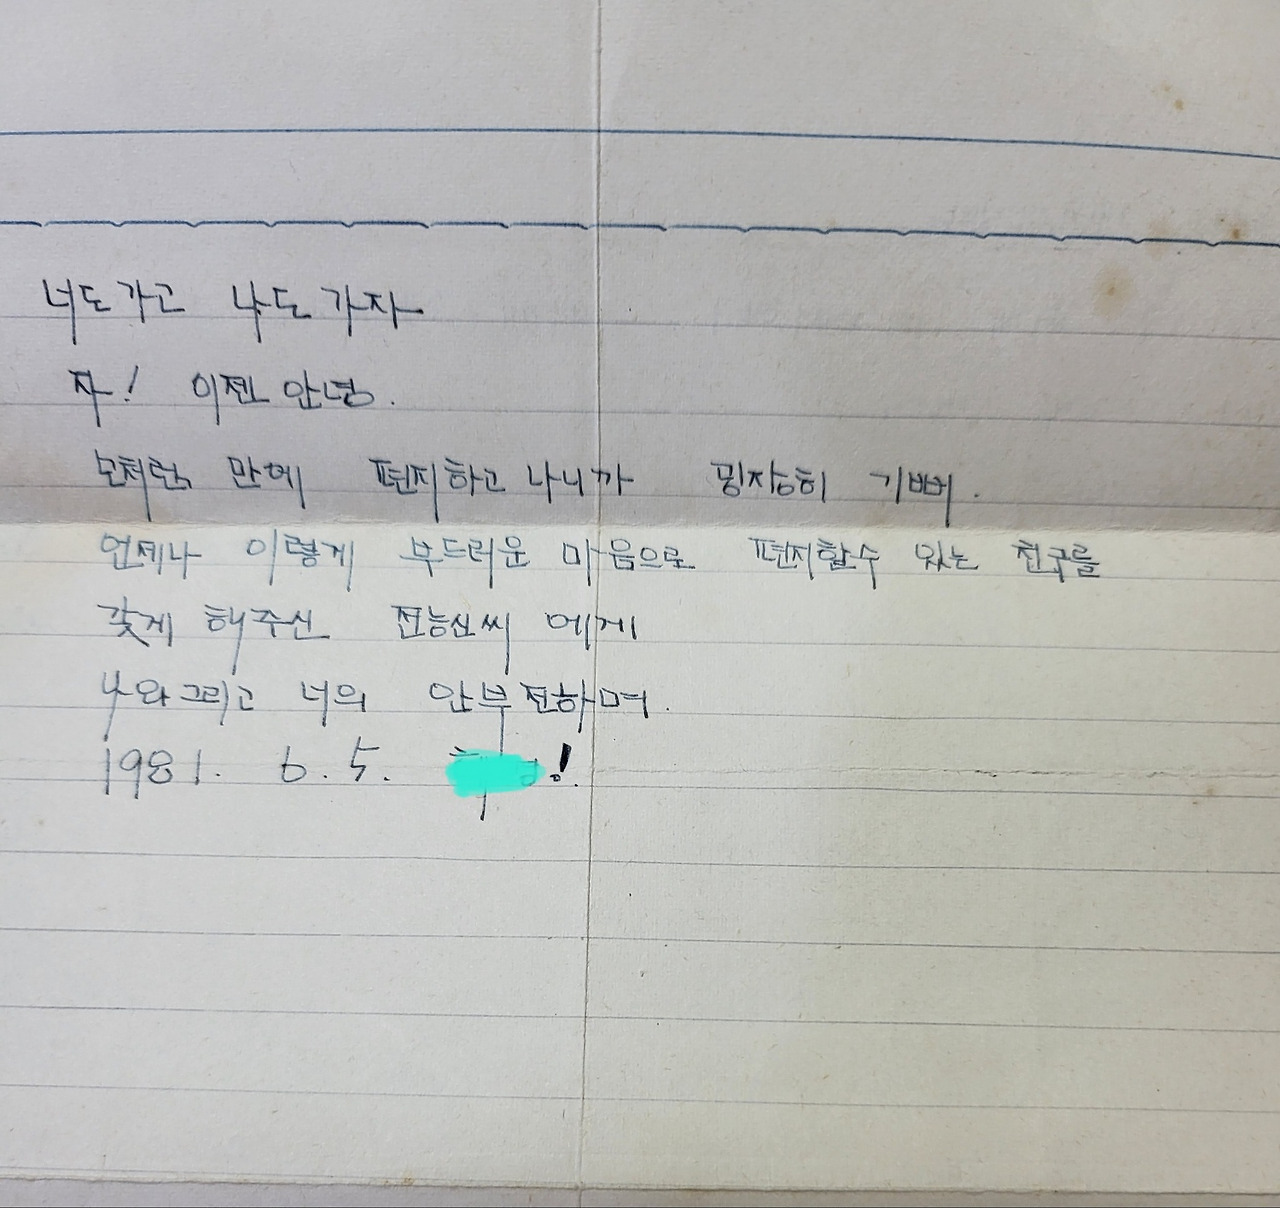 너도 가고 나도 가자
자! 이젠 안녕.
모처럼 만에 편지하고 나니까 굉장히 기뻐.
언제나 이렇게 부드러운 마음으로 편지할수 있는 친구를
갖게 해주신 전능신씨 에게
나와 그리고 너의 안부 전하며.
1981. 6. 5. !